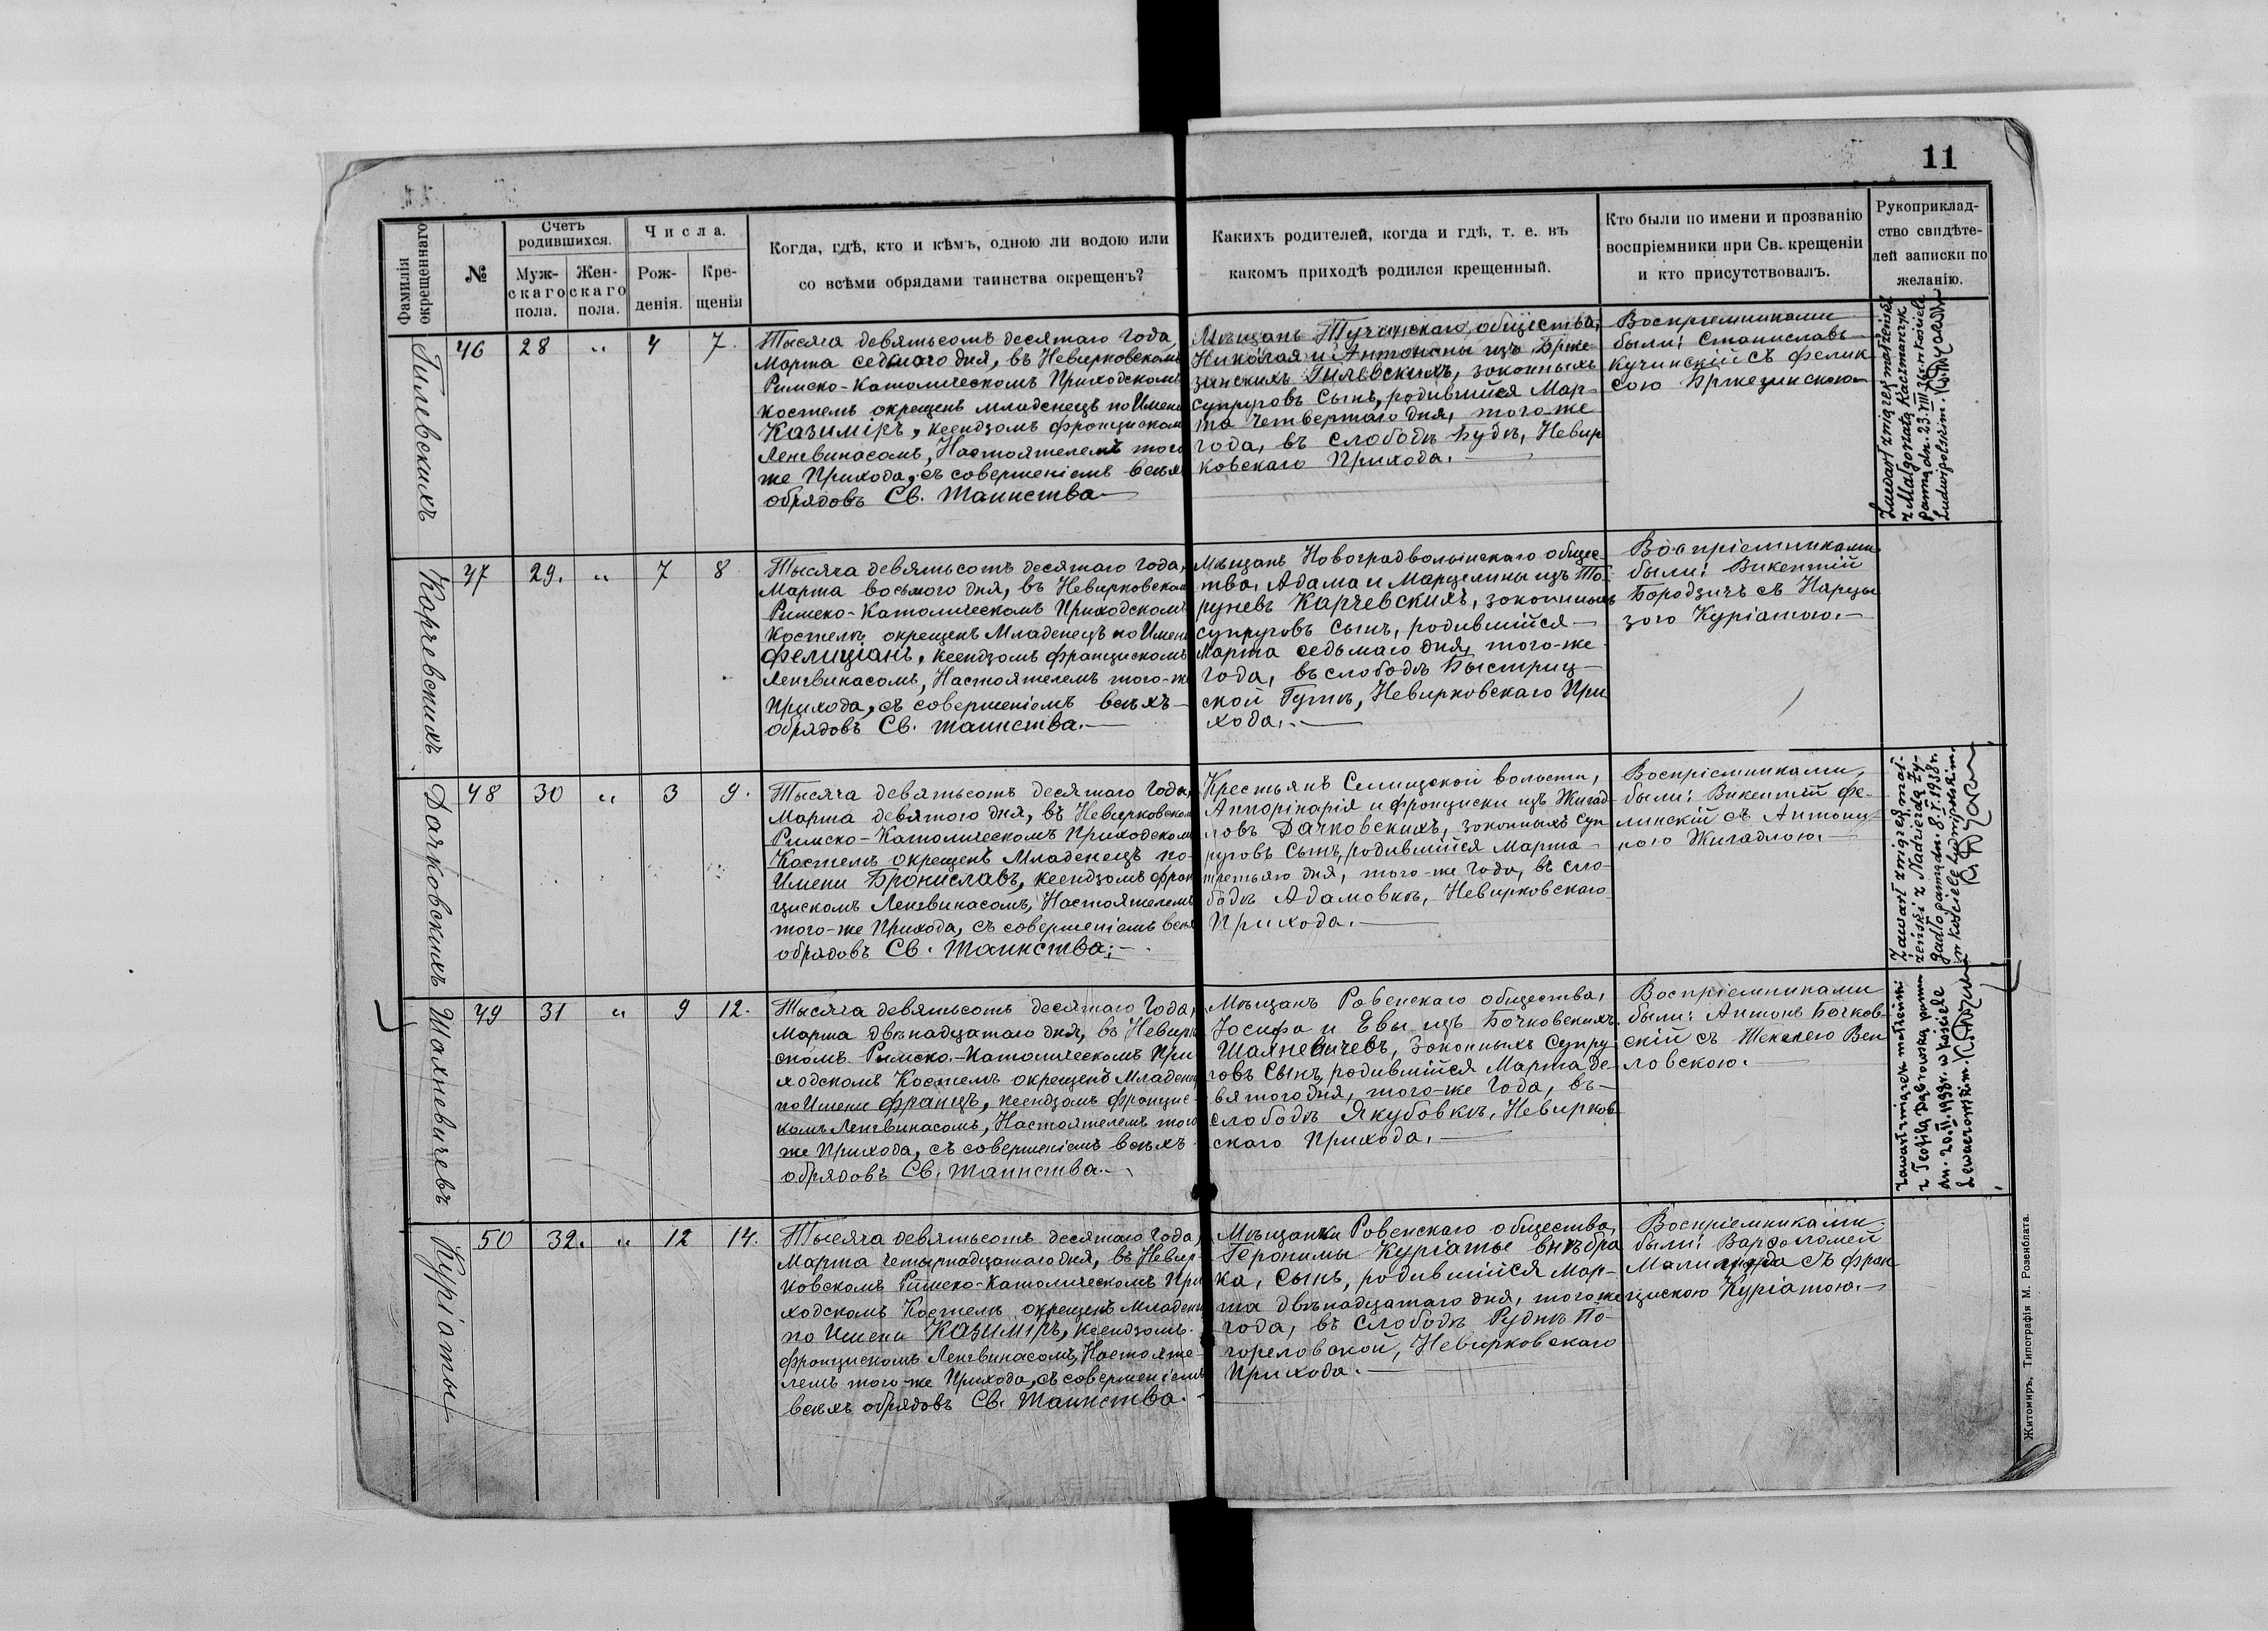 11
Фамилія
окрещеннаго
№
Счетъ
родившихся.
Муж-
скаго
пола.
Жен-
скаго
пола.
Числа.
Рож-
денія.
Кре-
щенія
Когда, гдѣ, кто и кѣмъ, одною ли водою или
со всѣми обрядами таинства окрещенъ?
Какихъ родителей, когда и гдѣ, т. е. въ
какомъ приходѣ родился крещенный.
Кто были по имени и прозванію
воспріемники при Св. крещеніи
и кто присутствовалъ.
Рукоприклад-
ство свидѣте-
лей записки по
желанію.
Гилевскихъ
46 28 „ 4 7.
Тысяча девятьсотъ десятаго года,
Марта седьмого дня, въ Невирковскомъ
Римско-Католическомъ Приходскомъ
Костелѣ окрещенъ младенецъ по Имени
Казиміръ, ксендзомъ Францискомъ
Ленгвинасомъ, Настоятелемъ того
же Прихода, съ совершеніемъ всѣхъ
обрядовъ Св. Таинства
Мѣщанъ Тучинскаго общества,
Николая и Антонины изъ Брже-
зинскихъ Гилевскихъ, законныхъ
супруговъ Сынъ, родившійся Мар-
та четвертаго дня, того-же
года, въ слободѣ Будкѣ, Невир
ковскаго Прихода.
Воспріемниками
были: Станиславъ
Кучинскій съ Фелик
сою Бржезинскою
Zawarł związek małżeński
z Małgorzatą Kaczmarczyk
panną dn. 23.VIII 36r. w kościele
Ludwipolskim.
Карчевскихъ
47 29. „ 7 8
Тысяча девятьсотъ десятаго года,
Марта восьмого дня, въ Невирковском
Римско-Католическомъ Приходскомъ
Костелѣ окрещенъ Младенецъ по Имени
Фелиціанъ, ксендзомъ Францискомъ
Ленгвинасомъ, Настоятелемъ того-же
Прихода, съ совершеніемъ всѣхъ
обрядовъ Св. таинства.
Мѣщанъ Новоградволынскаго общес-
тва, Адама и Марцелины изъ То-
руневъ Карчевскихъ, законныхъ
супруговъ Сынъ, родившійся
Марта седьмаго дня, того-же
года, въ слободѣ Быстриц-
ской Гутѣ, Невирковскаго При
хода.
Воспріемниками
были: Викентій
Бородзичъ съ Нарцы
зою Куріатою.
Дачковскихъ
48 30 „ 3 9.
Тысяча девятьсотъ десятаго года,
Марта девятого дня, въ Невирковском
Римско-Католическомъ Приходском
Костелѣ окрещенъ Младенецъ по-
Имени Брониславъ, ксендзомъ Фран
цискомъ Ленгвинасомъ, Настоятелемъ
того-же Прихода, съ совершеніемъ всѣх
обрядовъ Св. Таинства;
Крестьянъ Селищской волости,
Апполинарія и Франциски изъ Жигад-
ловъ Дачковскихъ, законныхъ суп
руговъ Сынъ, родившійся Марта
третьяго дня, того-же года, въ сло
бодѣ Адамовкѣ, Невирковскаго
Прихода.
Воспріемниками,
были: Викентій Фе-
линскій съ Антони-
ною Жигадлою.
Zawarł związek mał-
żeński z Nadzieją Ży-
gadło panną dn. 8.I.1938 r.
w kościele Ludwipolskim.
Шахневичевъ
49 31 „ 9 12.
Тысяча девятьсотъ десятаго года,
Марта двѣнадцатаго дня, въ Невирк
скомъ Римско-Католическомъ При
ходскомъ Костелѣ окрещенъ Младенец
по Имени Францъ, ксендзомъ Францис-
комъ Ленгвинасомъ, Настоятелемъ того
же Прихода, съ совершеніемъ всѣхъ
обрядовъ Св. таинства.
Мѣщанъ Ровенскаго общества,
Іосифа и Евы изъ Бочковскихъ
Шахневичевъ, Законныхъ Супру
говъ Сынъ, родившійся Марта де-
вятого дня, того-же года, въ
слободѣ Якубовкѣ, Невирков
скаго Прихода.
Воспріемниками
были: Антонъ Бочков-
скій съ Теклею Вен
ловскою.
zawarł związek małżeński
z Teofilą Dąbrowską panną
dn. 20.II.1938r. w kościele
Lewaczowskim.
Куріаты
50 32. „ 12 14.
Тысяча девятьсотъ десятаго года,
Марта четырнадцатаго дня, въ Невир-
ковскомъ Римско-Католическомъ При
ходскомъ Костелѣ окрещенъ Младенец
по Имени Казиміръ, ксендзомъ
Францискомъ Ленгвинасомъ, Настояте-
лемъ того-же Прихода, съ совершеніемъ
всѣхъ обрядовъ Св. Таинства.
Мѣщанки Ровенскаго общества,
Геронимы Куріаты внѣ бра
ка, Сынъ, родившійся Мар-
та двѣнадцатаго дня, того же
года, въ слободѣ Рудкѣ По-
гореловской, Невирковскаго
Прихода.
Воспріемниками
были: Варфоломей
съ Фран
цискою Куріатою.
Житомиръ, Типографія М. Розенблата.